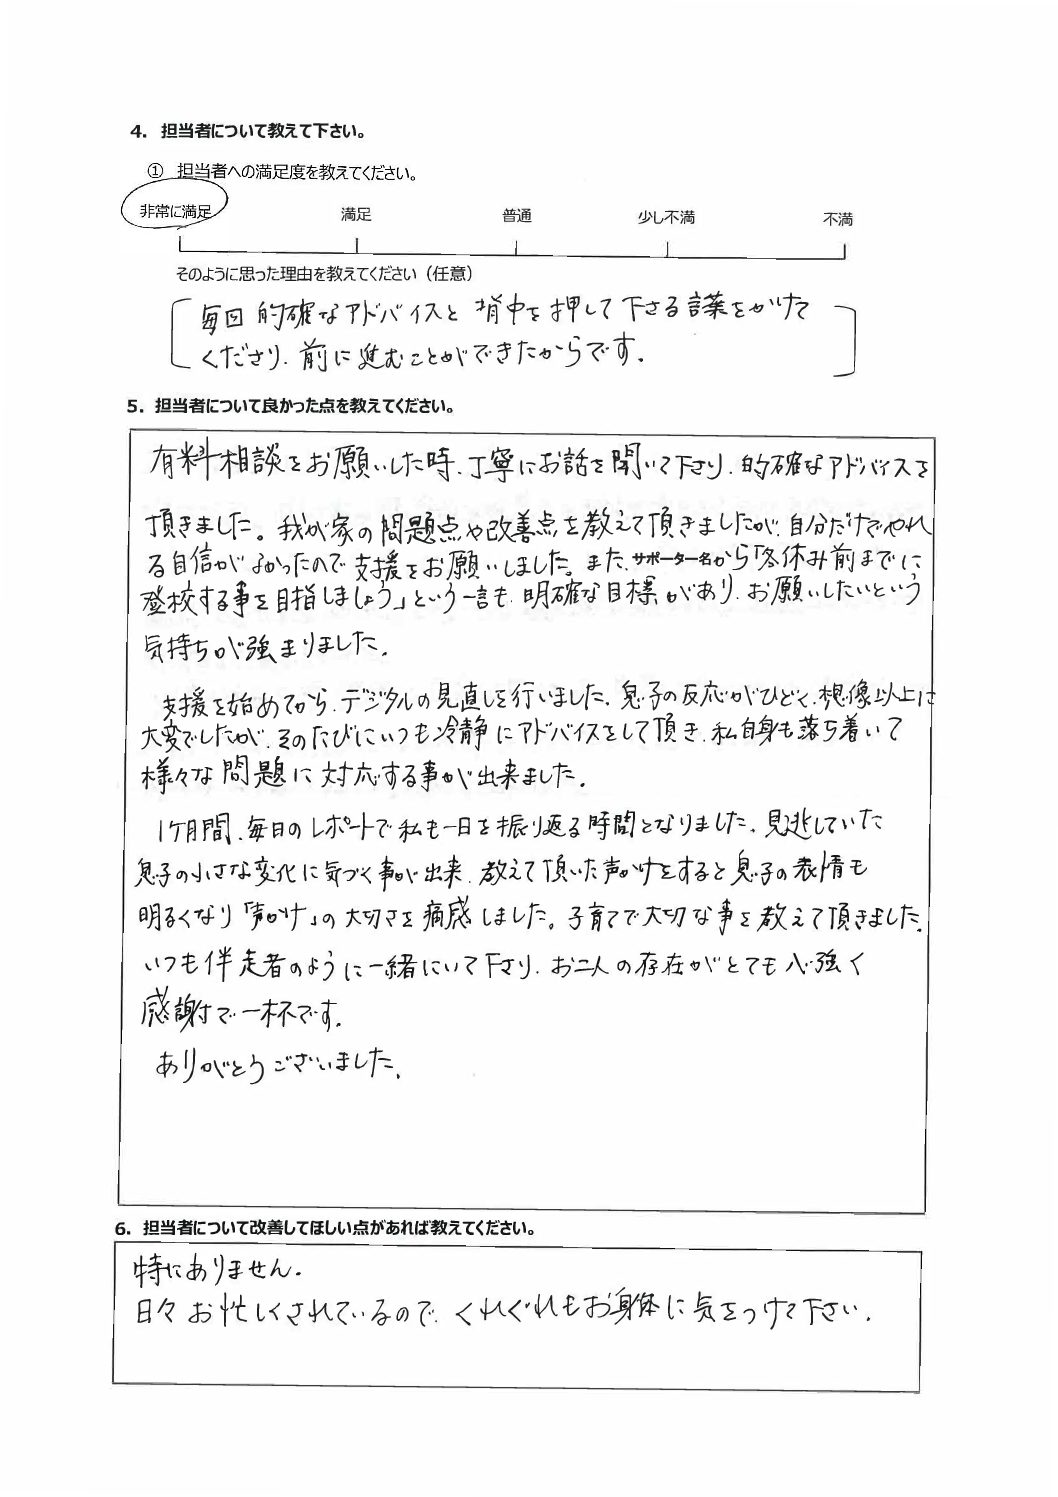 4. 担当者について教えて下さい。
① 担当者への満足度を教えてください。
非常に満足 満足 普通 少し不満 不満
そのように思った理由を教えてください（任意）
毎回 的確なアドバイスと 背中を押して下さる言葉をかけて
くださり、前に進むことができたからです。
5. 担当者について良かった点を教えてください。
有料相談をお願いした時、丁寧にお話を聞いて下さり、的確なアドバイスを
頂きました。我が家の問題点や改善点を教えて頂きましたが、自分だけでやれ
る自信がなかったので支援をお願いしました。また、サポーター名から「冬休み前までに
登校する事を目指しましょう」という一言も、明確な目標があり、お願いしたいという
気持ちが強まりました。
支援を始めてから、デジタルの見直しを行いました。息子の反応がひどく、想像以上に
大変でしたが、そのたびにいつも冷静にアドバイスをして頂き、私自身も落ち着いて
様々な問題に対応する事が出来ました。
1ヶ月間、毎日のレポートで私も一日を振り返る時間となりました。見逃していた
息子の小さな変化に気づく事が出来、教えて頂いた声かけをすると息子の表情も
明るくなり「声かけ」の大切さを痛感しました。子育てで大切な事を教えて頂きました。
いつも伴走者のように一緒にいて下さり、お二人の存在がとても心強く
感謝で一杯です。
ありがとうございました。
6. 担当者について改善してほしい点があれば教えてください。
特にありません。
日々お忙しくされているので、くれぐれもお身体に気をつけて下さい。